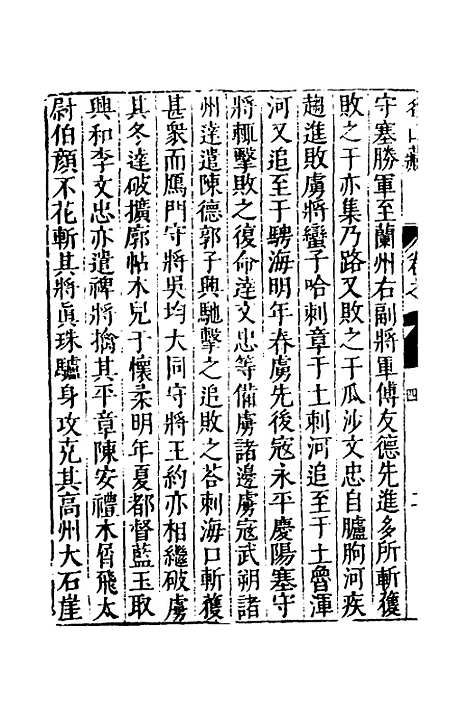 名山藏 卷之 四
守塞勝軍至蘭州右副將軍傅友德先進多所斬獲
敗之于亦集乃路又敗之于瓜沙文忠自臚朐河疾
趨進敗虜將蠻子哈刺章于土刺河追至于土魯渾
河又追至于騁海明年春虜先後寇永平慶陽塞守
將輒擊敗之復命達文忠等備虜諸邊虜寇武朔諸
州達遣陳德郭子興馳擊之追敗之荅刺海口斬獲
甚衆而鴈門守將吳均大同守將王約亦相繼破虜
其冬達破擴廓帖木兒于懷柔明年夏都督藍玉取
興和李文忠亦遣裨將擒其平章陳安禮木屑飛太
尉伯顏不花斬其將眞珠驢身攻克其高州大石崖